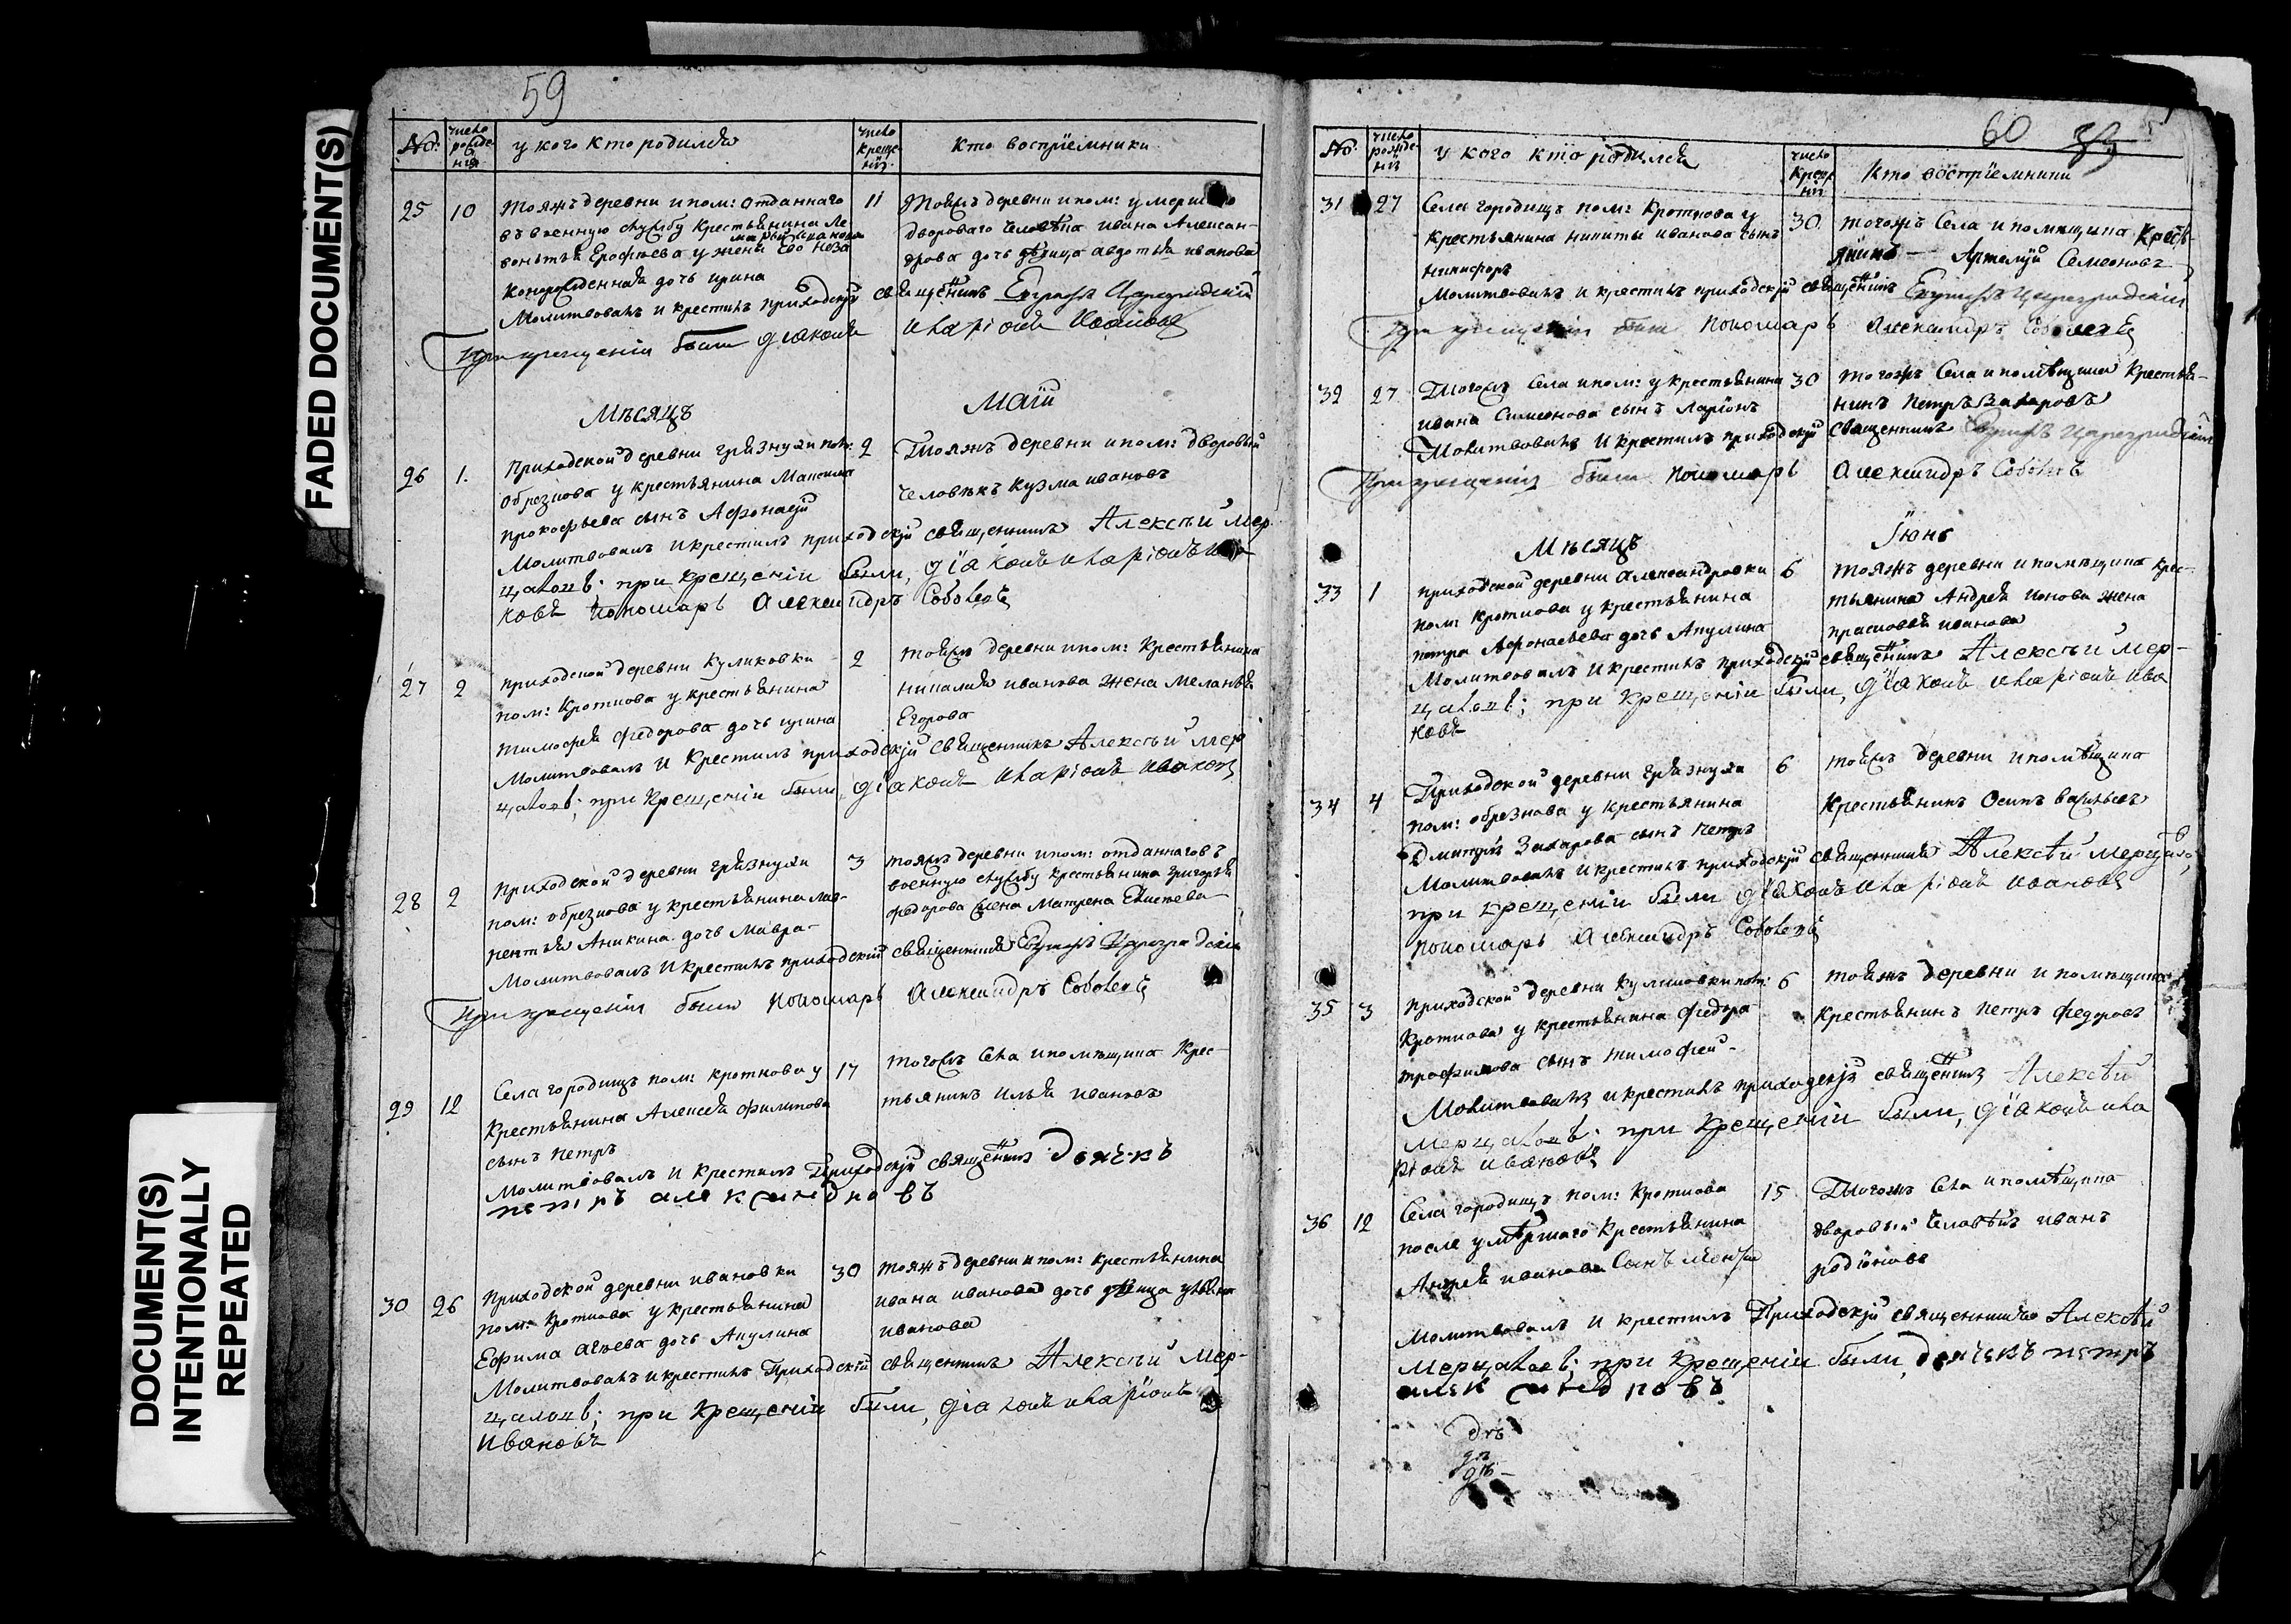 FADED DOCUMENT(S)
DOCUMENT(S)
INTENTIONALLY
REPEATED
59
No. число рожде-нія у кого кто родился число креще-нія. Кто воспріемники
25 10 11
Тояжъ деревни и пом: отданнаго
въ военную службу крестьянина Ле-
вонтья Ерофѣева у жены его
дочь ирина
Молитвовалъ и крестилъ приходскій священникъ
При крещеніи были діаконъ иларіонъ Ивановъ
Тойжъ деревни и пом: умершаго
двороваго человѣка ивана Алексан-
дрова дочь дѣвица авдотья иванова
Мѣсяцъ Маій
26 1. 2
Приходской деревни грязнухи пом:
обрезкова у крестьянина Максима
прокофьева сынъ Афонасій
Молитвовалъ и крестилъ приходскій священникъ Алексѣй Мер
цаловъ; при крещеніи были, діаконъ иларіонъ Ива-
новъ пономарь Александръ Соболевъ
Тояжъ деревни и пом: дворовый
человѣкъ кузма ивановъ
27 2 2
приходской деревни куликовки
пом: Кроткова у крестьянина
тимофея федорова дочь ирина
Молитвовалъ и Крестилъ приходскій священникъ Алексѣй Мер
цаловъ; при крещеніи были, діаконъ иларіонъ ивановъ
тойжъ деревни и пом: крестьянина
николая иванова жена меланья
Егорова
28 2 3
Приходской деревни грязнухи
пом: обрезкова у крестьянина лав-
рентья Аникина дочь мавра-
Молитвовалъ и крестилъ приходскій священникъ
При крещеніи были пономарь Александръ Соболевъ
тояжъ деревни и пом: отданнаго въ
военную службу крестьянина григорья
федорова жена Матрена
29 12 17
Села городищъ пом: кроткова у
Крестьянина Алексея филипова
сынъ петръ
Молитвовалъ и крестилъ Приходскій священникъ дьячекъ
петръ александровъ
тогожъ села и помещика Крес-
тьянинъ илья ивановъ
30 26 30
Приходской деревни ивановки
пом: кроткова у крестьянина
Ефима дочь Акулина
Молитвовалъ и крестилъ Приходскій священникъ Алексѣй Мер-
цаловъ; при крещеніи были, діаконъ иларіонъ
Ивановъ
тояжъ деревни и пом: крестьянина
ивана иванова дочь дѣвица
иванова
60
No. число рожде-нія у кого кто родился число креще-нія Кто воспріемники
31 27 30.
Села городищъ пом: Кроткова у
крестьянина никиты иванова сынъ
никифоръ
Молитвовалъ и крестилъ приходскій священникъ
При крещеніи были пономарь Александръ Соболевъ
тогожъ Села и помещика Крестья-
янинъ — Артемій Семеоновъ
32 27 30
Тогожъ Села и пом: у крестьянина
ивана Симеонова сынъ ларіонъ
Молитвовалъ и крестилъ приходскій священникъ
При крещеніи были пономарь Александръ Соболевъ
тогожъ Села и помѣщика Крестья-
нинъ петръ Захаровъ
Мѣсяцъ Іюнь
33 1 6
приходской деревни александровки
пом: кроткова у крестьянина
петра Афонасьева дочь Акулина
Молитвовалъ и крестилъ приходскій священникъ Алексѣй Мер-
цаловъ; при крещеніи были, діаконъ иларіонъ Ива
новъ
тояжъ деревни и помещика крес-
тьянина Андрея жена
прасковья иванова
34 4 6
Приходской деревни грязнухи
пом: обрезкова у крестьянина
Дмитрія Захарова сынъ петръ
Молитвовалъ и крестилъ приходскій священникъ Алексѣй Мерцало,
при крещеніи были діаконъ иларіонъ ивановъ
пономарь Александръ Соболевъ
тойжъ деревни и помѣщика
крестьянинъ Осипъ васильевъ
35 3 6
приходской деревни куликовки пом:
Кроткова у крестьянина федора
трофимова сынъ тимофей-
Молитвовалъ и крестилъ приходскій священникъ Алексѣй
мерцаловъ; при крещеніи были, діаконъ ила
ріонъ ивановъ
тояжъ деревни и помещика
крестьянинъ петръ федоровъ
36 12 15
Села городищъ пом: Кроткова
после умѣршаго крестьянина
Андрея иванова сынъ
Молитвовалъ и крестилъ Приходскій священникъ Алексѣй
мерцаловъ; при крещеніи были, дьячекъ петръ
александровъ
Тогожъ села и помѣщика
дворовый человѣкъ иванъ
родіоновъ